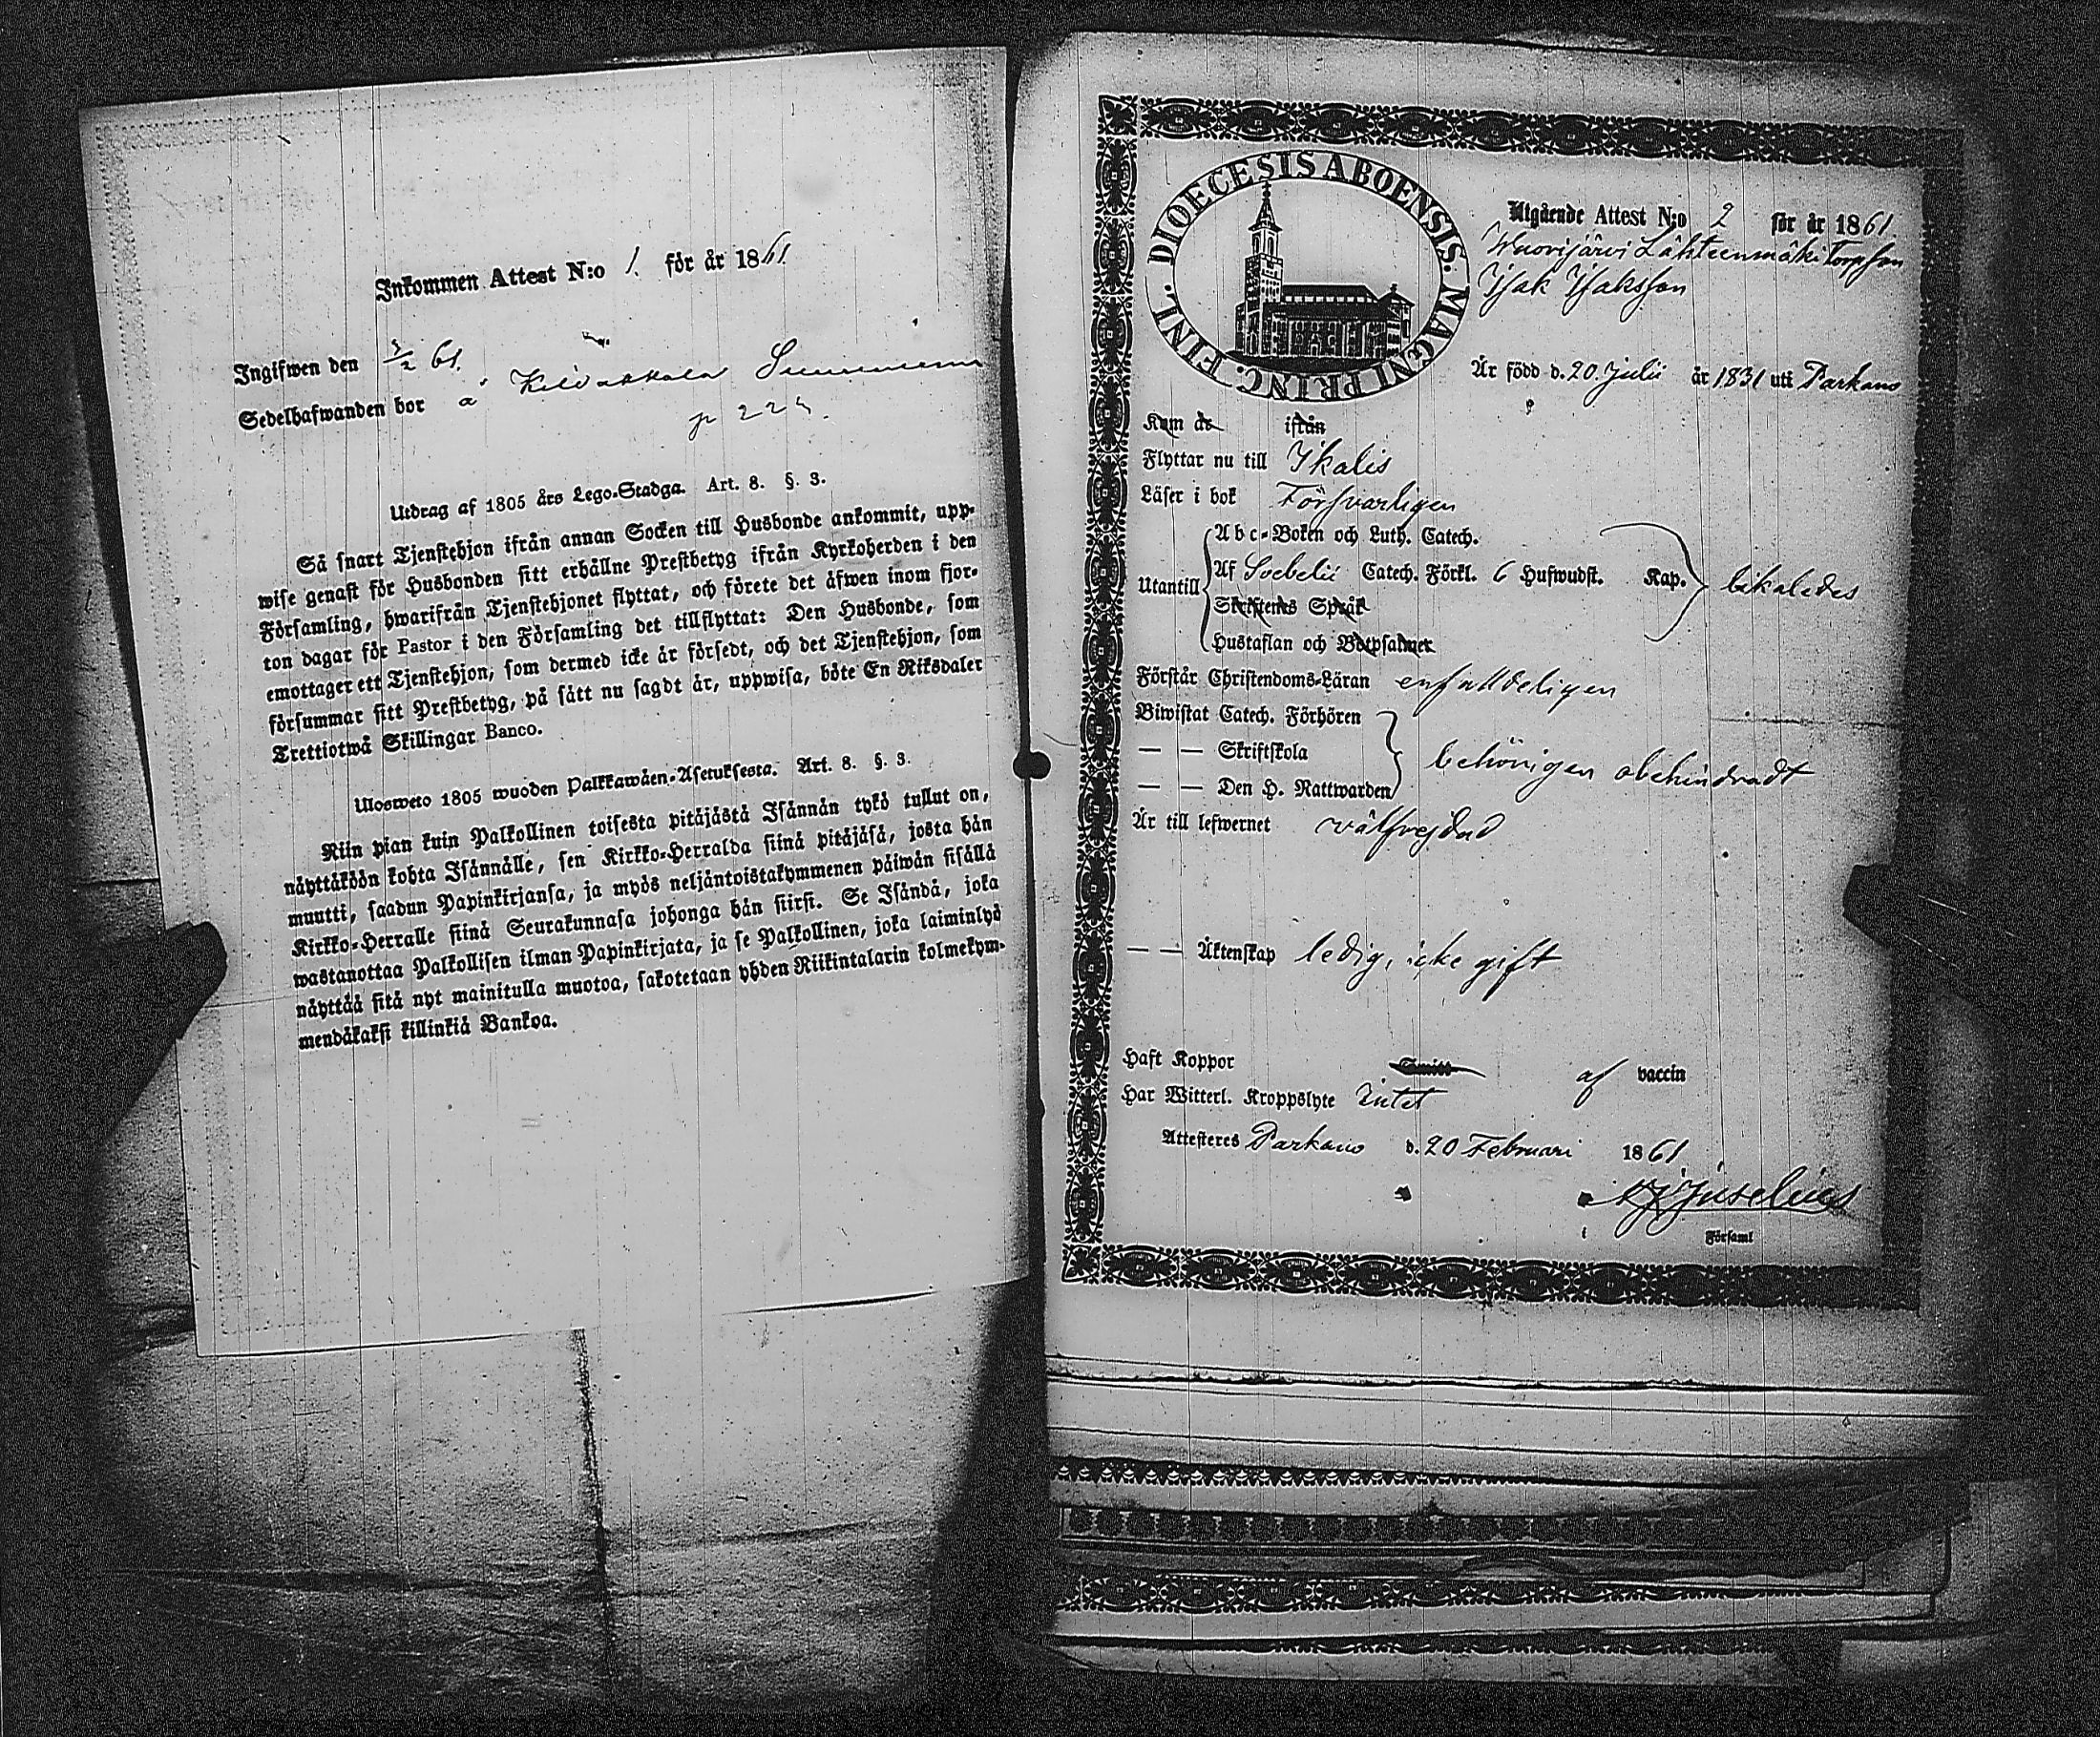 Inkommen Attest N:o 1. för år 1861.
Ingifwen den 61.
Sedelhafwanden bor å
p 224.
Utdrag af 1805 års Lego-Stadga. Art. 8. §. 3.
Så snart Tjenstehjon ifrån annan Socken till Husbonde ankommit, upp-
wise genast för Husbonden sitt erhållne Prestbetyg ifrån Kyrkoherden i den
Församling, hwarifrån Tjenstehjonet flyttat, och förete det äfwen inom fjor-
ton dagar för Pastor i den Församling det tillflyttat: Den Husbonde, som
emottager ett Tjenstehjon, som dermed icke är försedt, och det Tjenstehjon, som
försummar sitt Prestbetyg, på sätt nu sagdt är, uppwisa, böte En Riksdaler
Trettiotwå Skillingar Banco.
Ulosweto 1805 wuoden Palkkawäen-Asetuksesta. Art. 8. §. 3.
Niin pian kuin Palkollinen toisesta pitäjästä Isännän tykö tullut on,
näyttäköön kohta Isännälle, sen Kirkko-Herralda siinä pitäjäsä, josta hän
muutti, saadun Papinkirjansa, ja myös neljäntoistakymmenen päiwän sisällä
Kirkko-Herralle siinä Seurakunnasa johonga hän siirsi. Se Isändä, joka
wastanottaa Palkollisen ilman Papinkirjata, ja se Palkollinen, joka laiminlyö
näyttää sitä nyt mainitulla muotoa, sakotetaan yhden Riikintalarin kolmekym-
mendäkaksi killinkiä Bankoa.
DIOECESIS ABOENSIS. MAGNI PRINC. FINL.
Utgående Attest N:o 2 för år 1861.
Wuorijärvi Lähteenmäki Torpson
Isak Isaksson
Är född d. 20. Julii år 1831 uti Parkano
Kom de ifrån
Flyttar nu till Ikalis
Läser i bok Försvarligen
Utantill
Abc-Boken och Luth. Catech.
Af Svebelii Catech. Förkl. 6 Hufwudst. Kap. likaledes
Skriftenes Språk
Hustaflan och Botpsalmer
Förstår Christendoms-Läran enfalldeligen
Biwistat Catech. Förhören
— — Skriftskola behörigen obehindradt
— — Den H. Nattwarden
Är till lefwernet välfrejdad
— — Äktenskap ledig, icke gift
Haft Koppor af vaccin
Har Witterl. Kroppslyte Intet
Attesteres Parkano d. 20 Februari 1861
Juselius
Församl